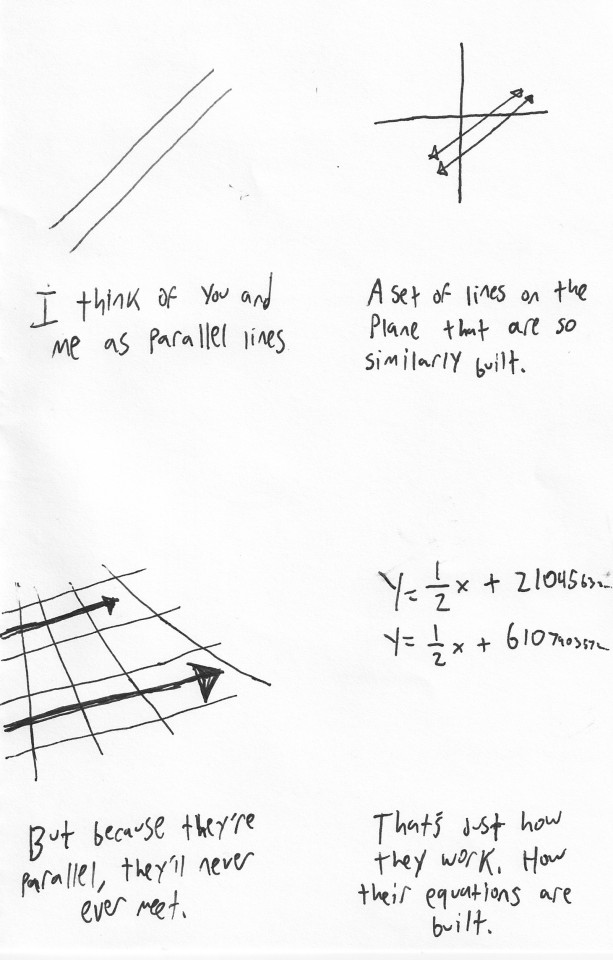 I think of you and
me as parallel lines
A set of lines on the
Plane that are so
similarly built.
But because they're
parallel, they'll never
ever meet.
Y=1/2x + 21045632
Y=1/2x + 610790357
That's just how
they work. How
their equations are
built.